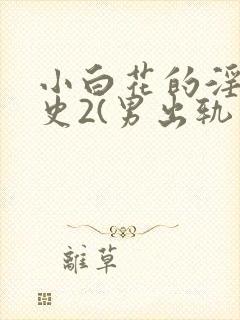 小白花的淫
史2(男出轨
離草